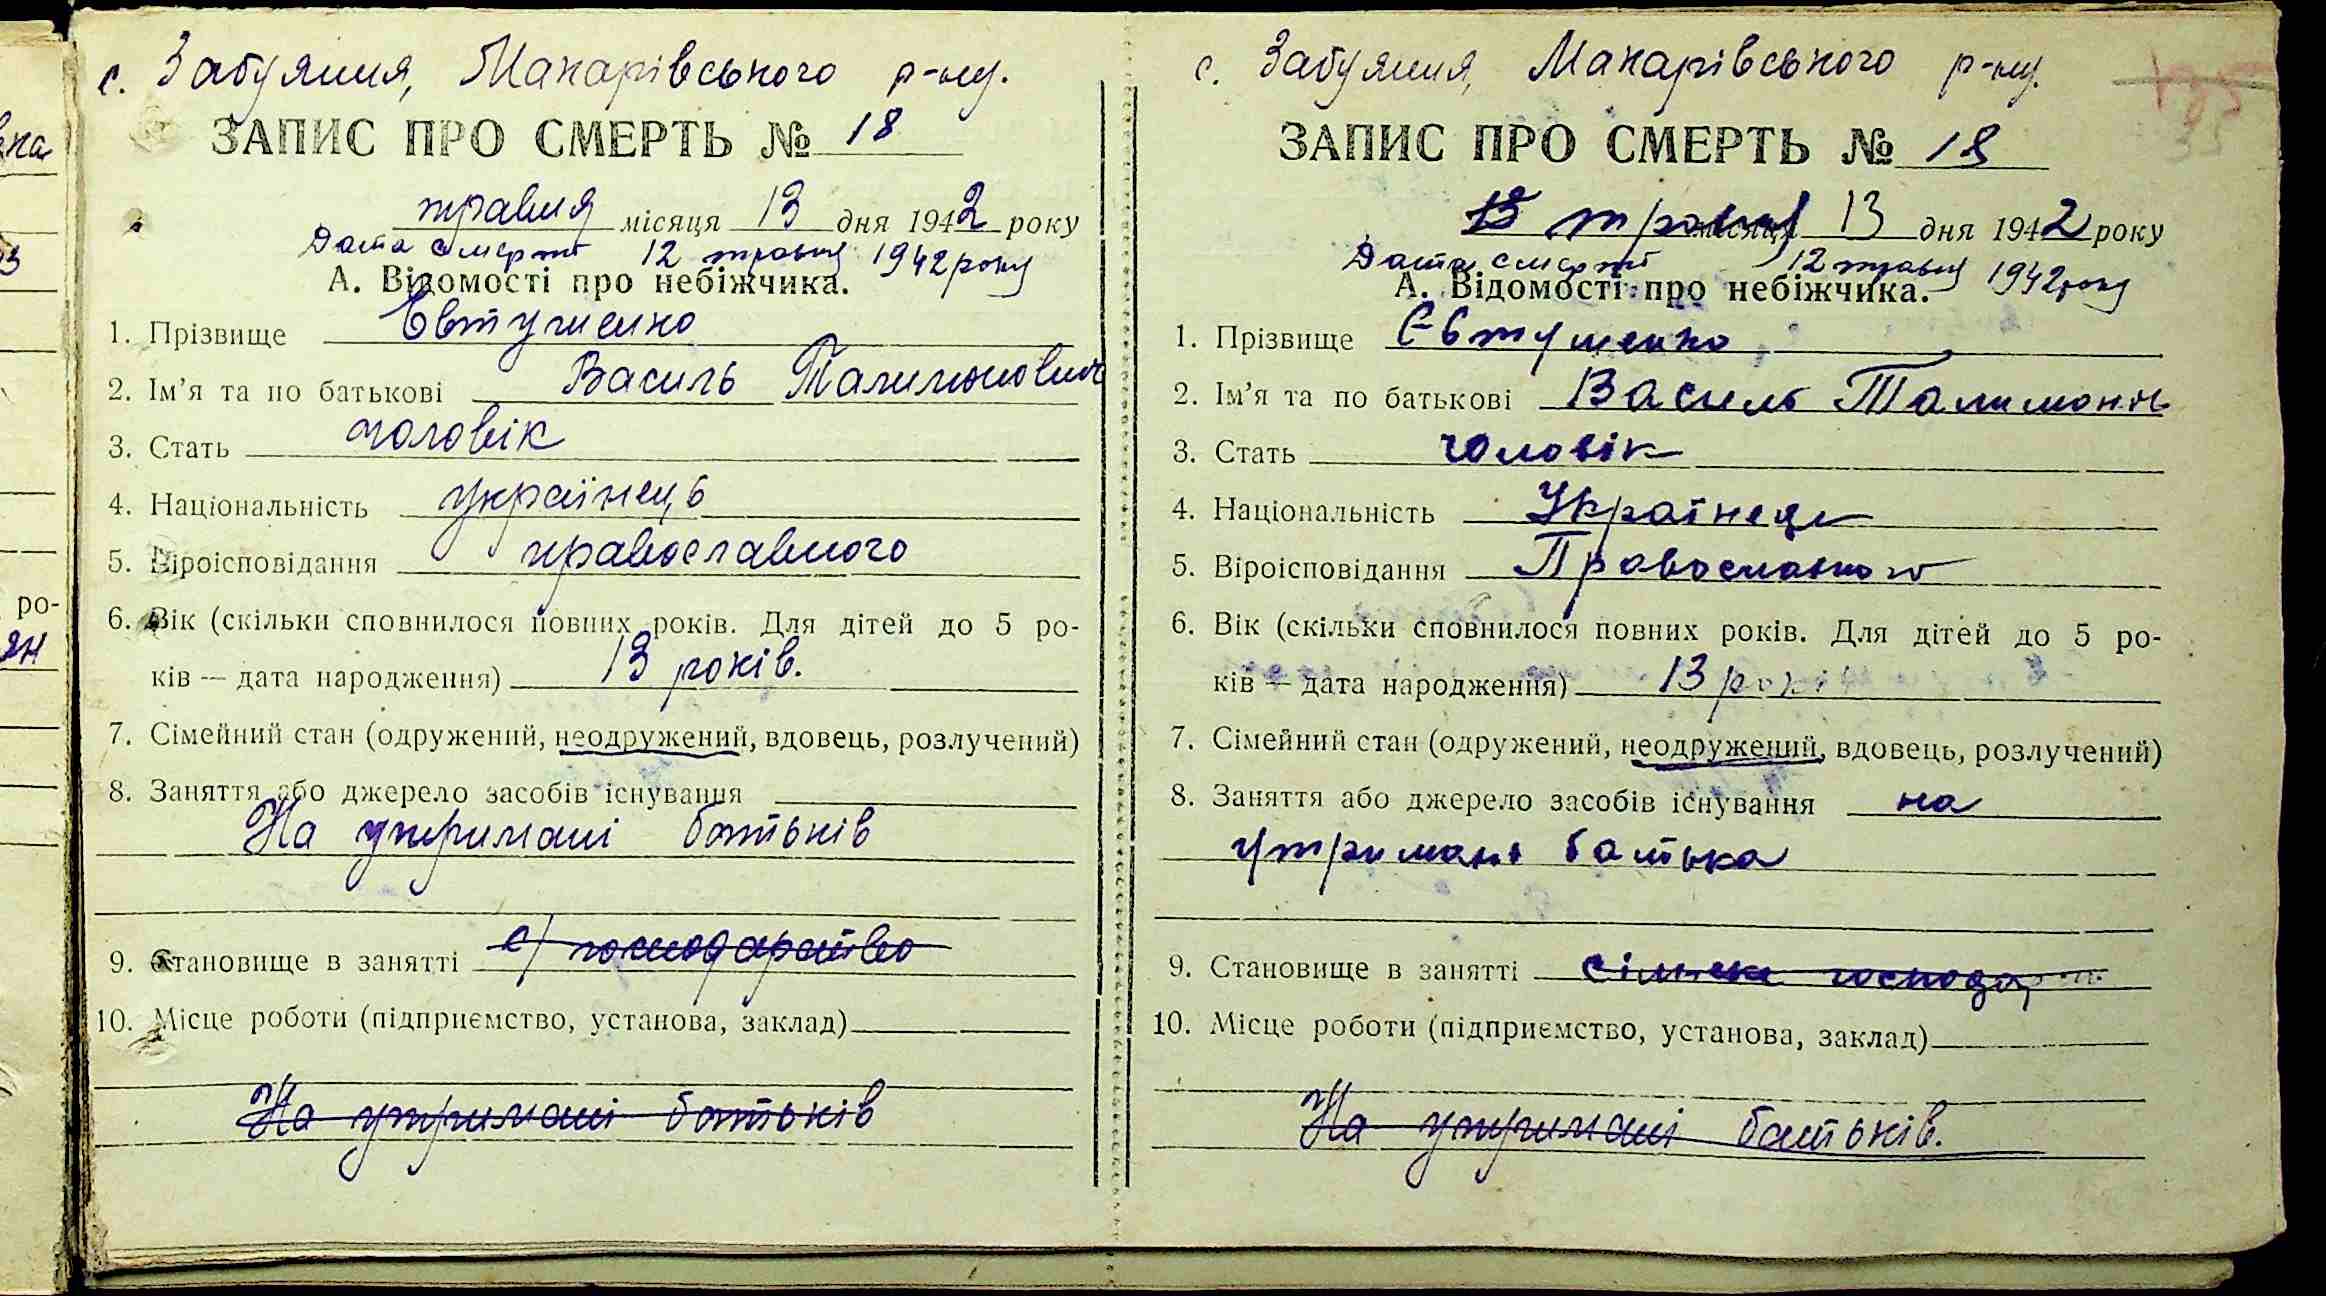 вка
3
ро-
ян
с. Забуяння, Макарівського р-ну.
ЗАПИС ПРО СМЕРТЬ № 18
травня місяця 13 дня 1942 року
Дата смерті 12 травня 1942 року
А. Відомості про небіжчика.
1. Прізвище Євтушенко
2. Ім'я та по батькові Василь Талимонович
3. Стать чоловік
4. Національність українець
5. Віроісповідання православного
6. Вік (скільки сповнилося повних років. Для дітей до 5 ро-
ків — дата народження) 13 років.
7. Сімейний стан (одружений, неодружений, вдовець, розлучений)
8. Заняття або джерело засобів існування
На утримані батьків
9. Становище в занятті с/господарство
10. Місце роботи (підприємство, установа, заклад)
На утримані батьків
с. Забуяння, Макарівського р-ну.
ЗАПИС ПРО СМЕРТЬ № 18
13 травня місяця 13 дня 1942 року
Дата смерті 12 травня 1942 року
А. Відомості про небіжчика.
1. Прізвище Євтушенко
2. Ім'я та по батькові Василь
3. Стать чоловік
4. Національність Українець
5. Віроісповідання Православного
6. Вік (скільки сповнилося повних років. Для дітей до 5 ро-
ків — дата народження) 13 років
7. Сімейний стан (одружений, неодружений, вдовець, розлучений)
8. Заняття або джерело засобів існування на
утримань батька
9. Становище в занятті
10. Місце роботи (підприємство, установа, заклад)
На утримані батьків.